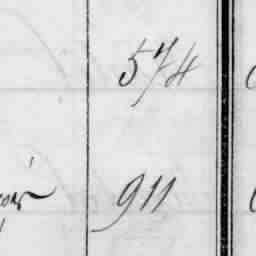 574
911